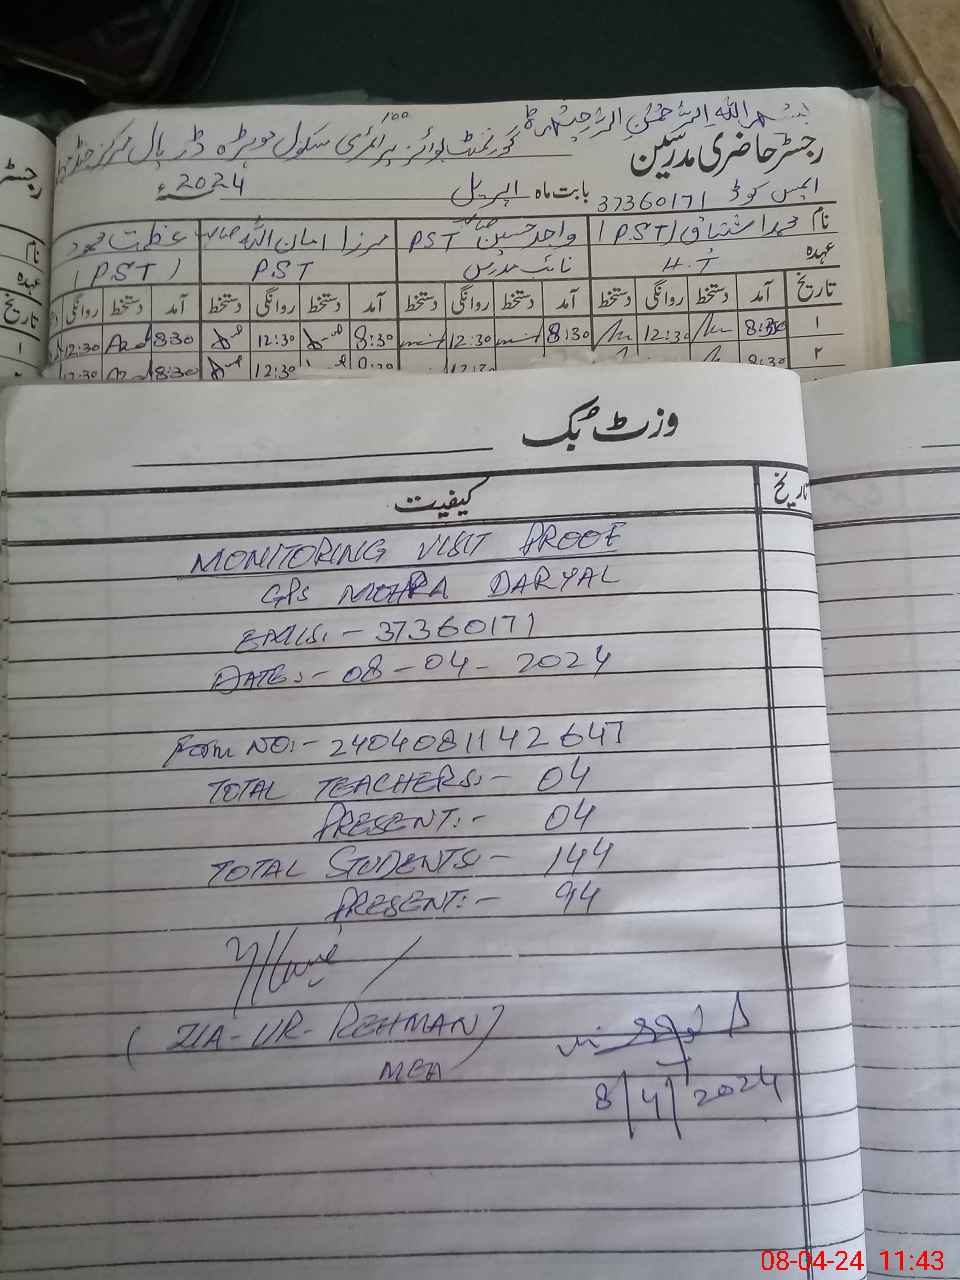 بسم اللہ الرحمٰن الرحیم
رجسٹر حاضری مدرسین گورنمنٹ بوائز پرائمری سکول موہڑہ ڈریال مرکز
ایمس کوڈ 37360171 بابت ماہ اپریل 2024ء
نام محمد اشتیاق (P.S.T) واجد حسین صاحب PST مرزا امان اللہ صاحب عظمت محمود
عہدہ H.T نائب مدرس P.S.T (P.S.T)
تاریخ آمد دستخط روانگی دستخط آمد دستخط روانگی دستخط آمد دستخط روانگی دستخط آمد دستخط روانگی
۱ 8:30 12:30 8:30 12:30 8:30 12:30 8:30 12:30
۲ 8:30 12:30 8:30 12:30 8:30 12:30
رجسٹر
نام
عہدہ
تاریخ
۱
وزٹ بک
تاریخ کیفیت
MONITORING VISIT PROOF
GPS MOHRA DARYAL
EMIS:- 37360171
DATE:- 08-04-2024
Form NO:- 2404081142647
TOTAL TEACHERS:- 04
PRESENT:- 04
TOTAL STUDENTS:- 144
PRESENT:- 94
(ZIA-UR-REHMAN)
MEA
8/4/2024
08-04-24 11:43